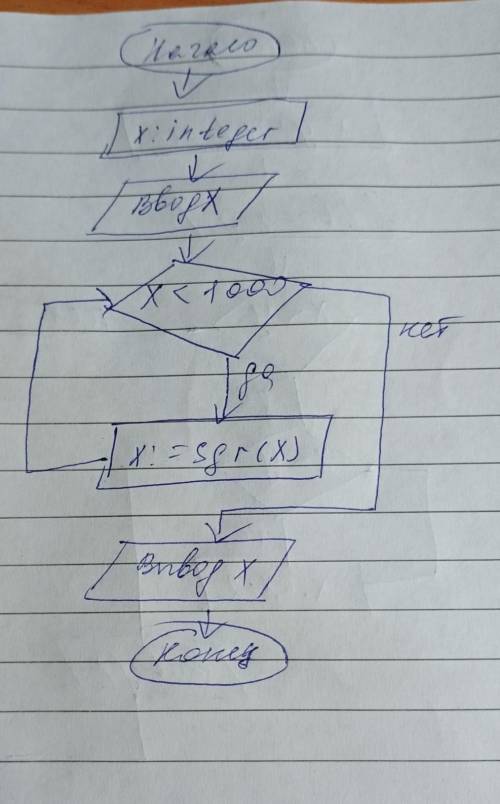 Начало
x: integer
Ввод X
X < 1000
нет
да
x: = sqr(X)
Вывод X
Конец